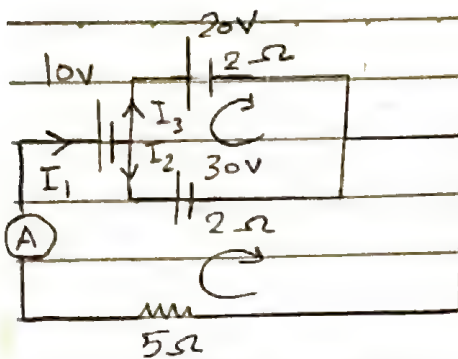 20V
10V
2Ω
I₃
I₁
I₂
30V
2Ω
A
5Ω